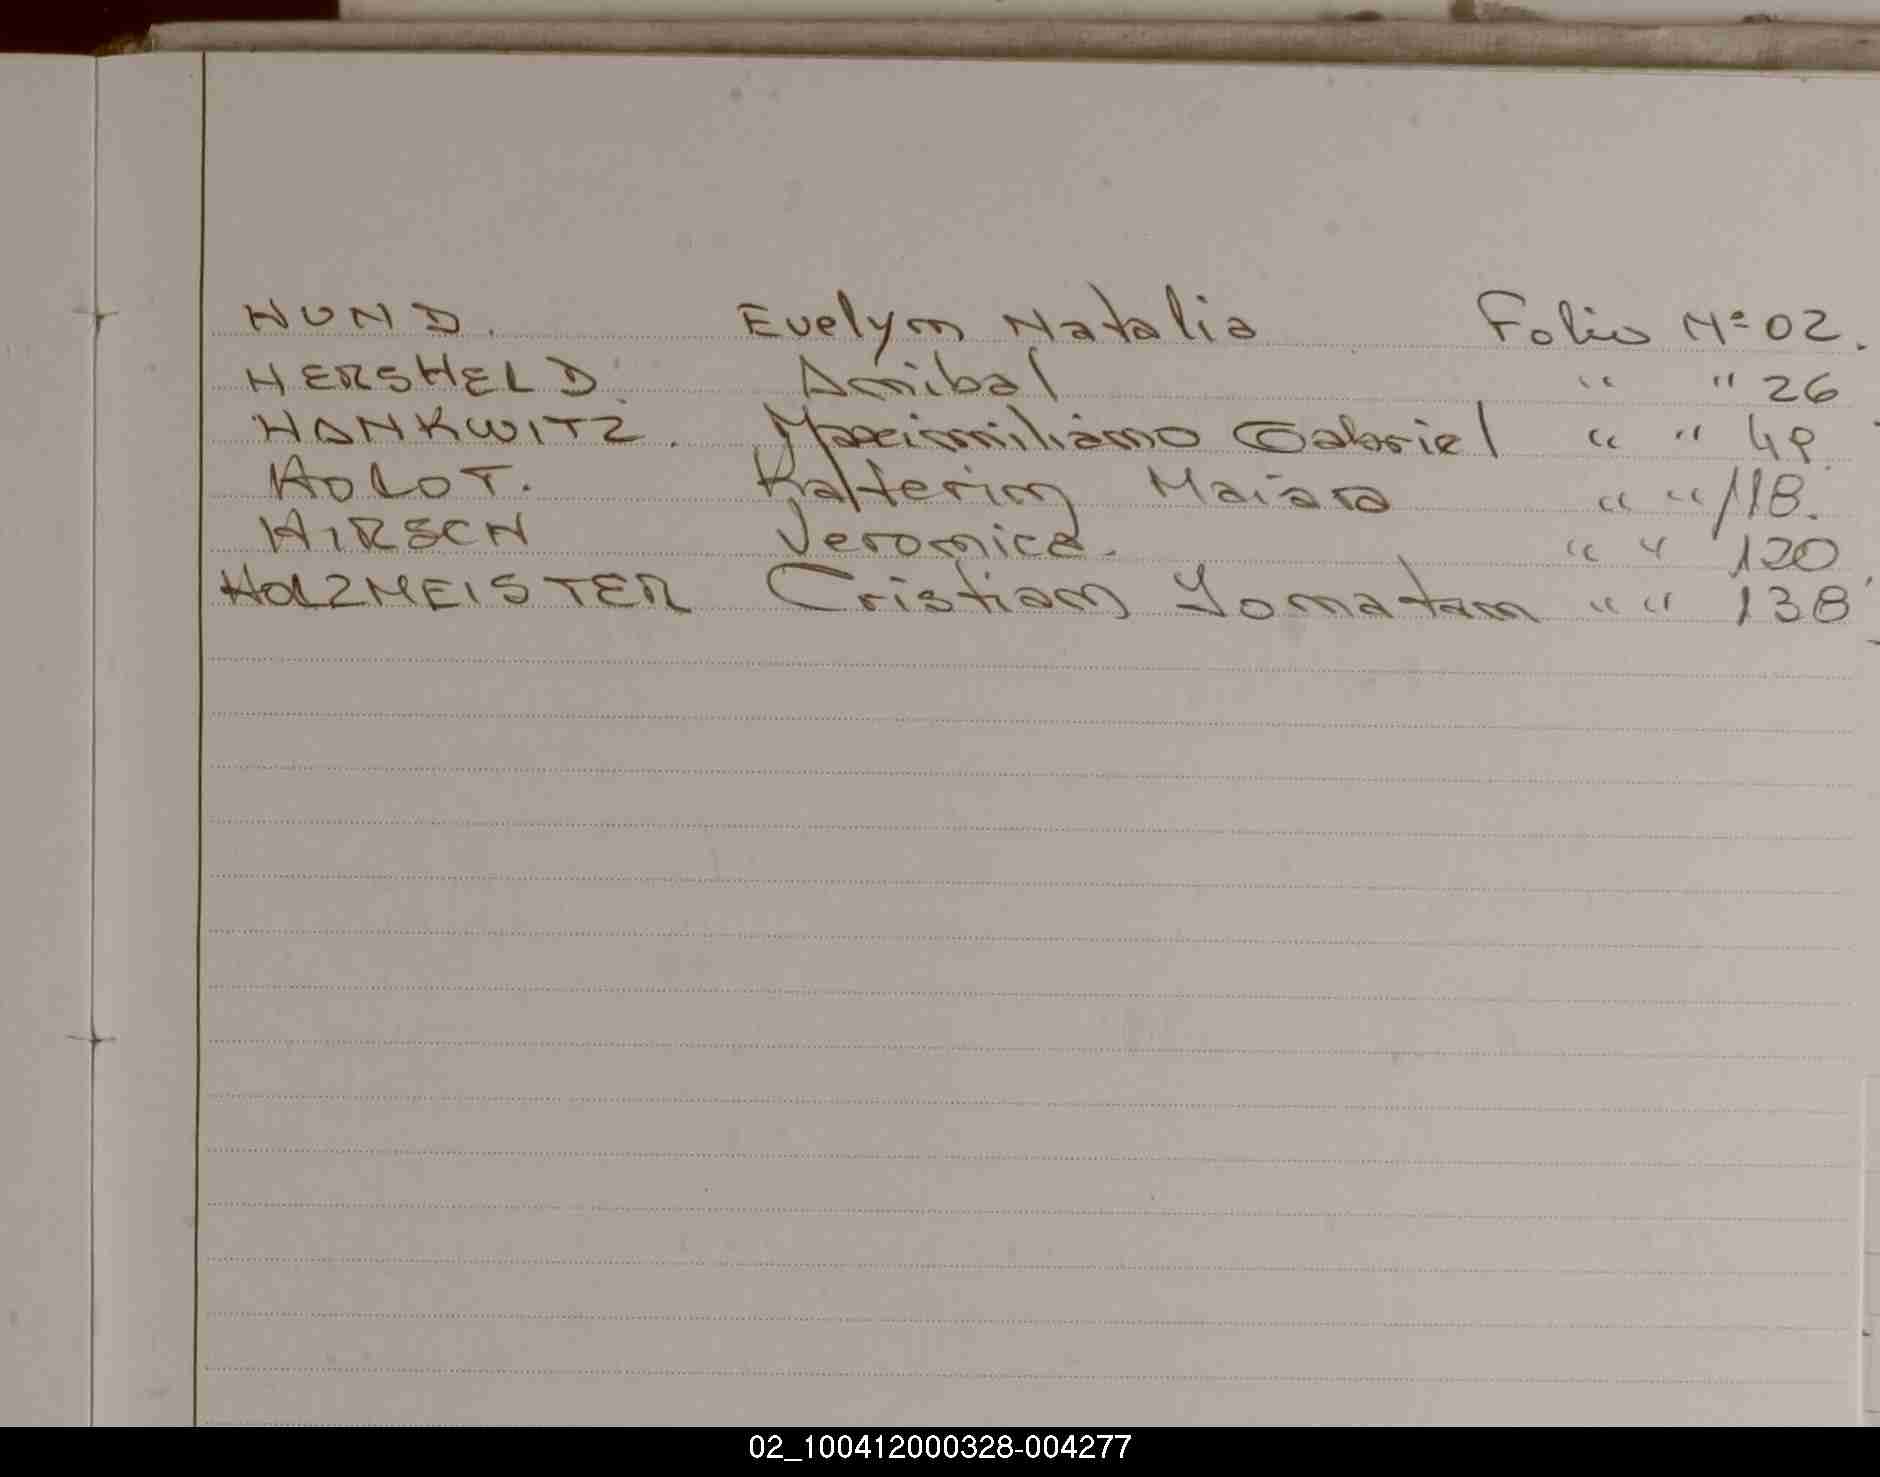 HUND. Evelyn Natalia Folio Nº 02.
HERSHELD. Anibal " " 26
HANKWITZ. Maximiliano Gabriel " " 49.
HOLOT. Katterin Maiara " " 118.
HIRSCH Veronica. " " 120
HOLZMEISTER Cristian Yonatan " " 138
02_100412000328-004277